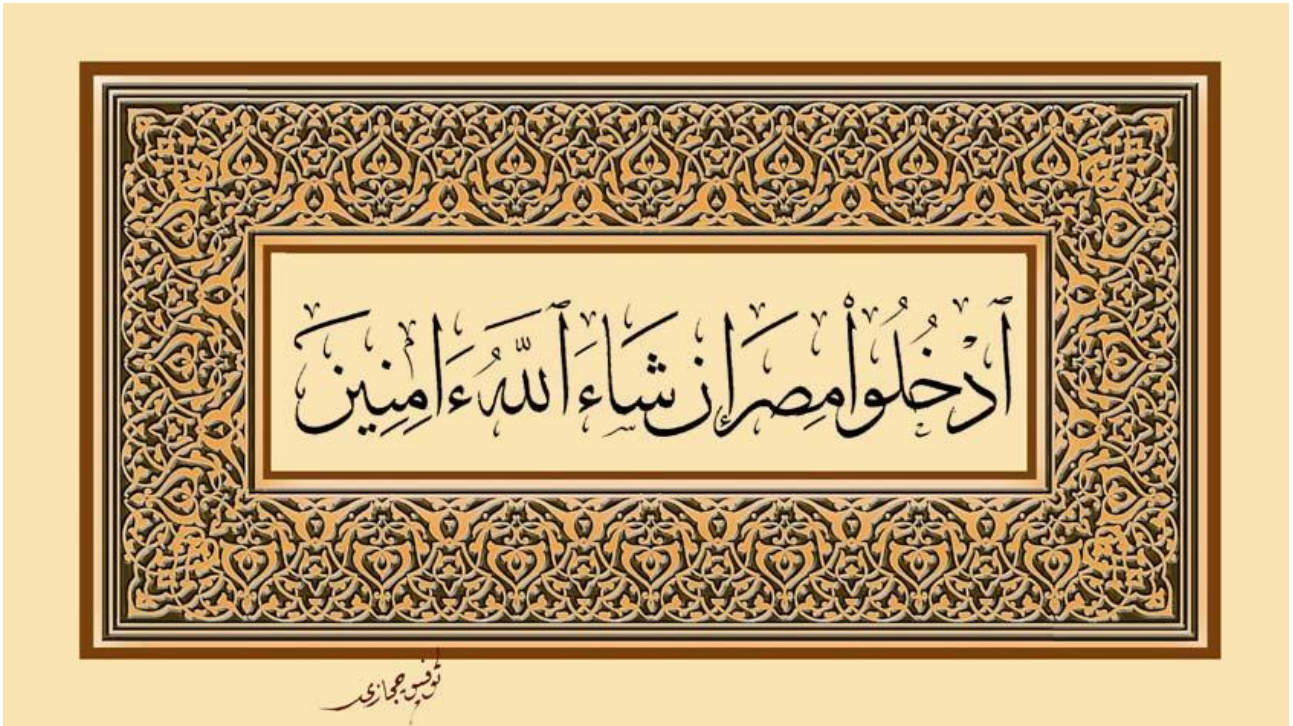 ٱدْخُلُوا۟ مِصْرَ إِن شَاءَ ٱللَّهُ ءَامِنِينَ
توفيق حجازى